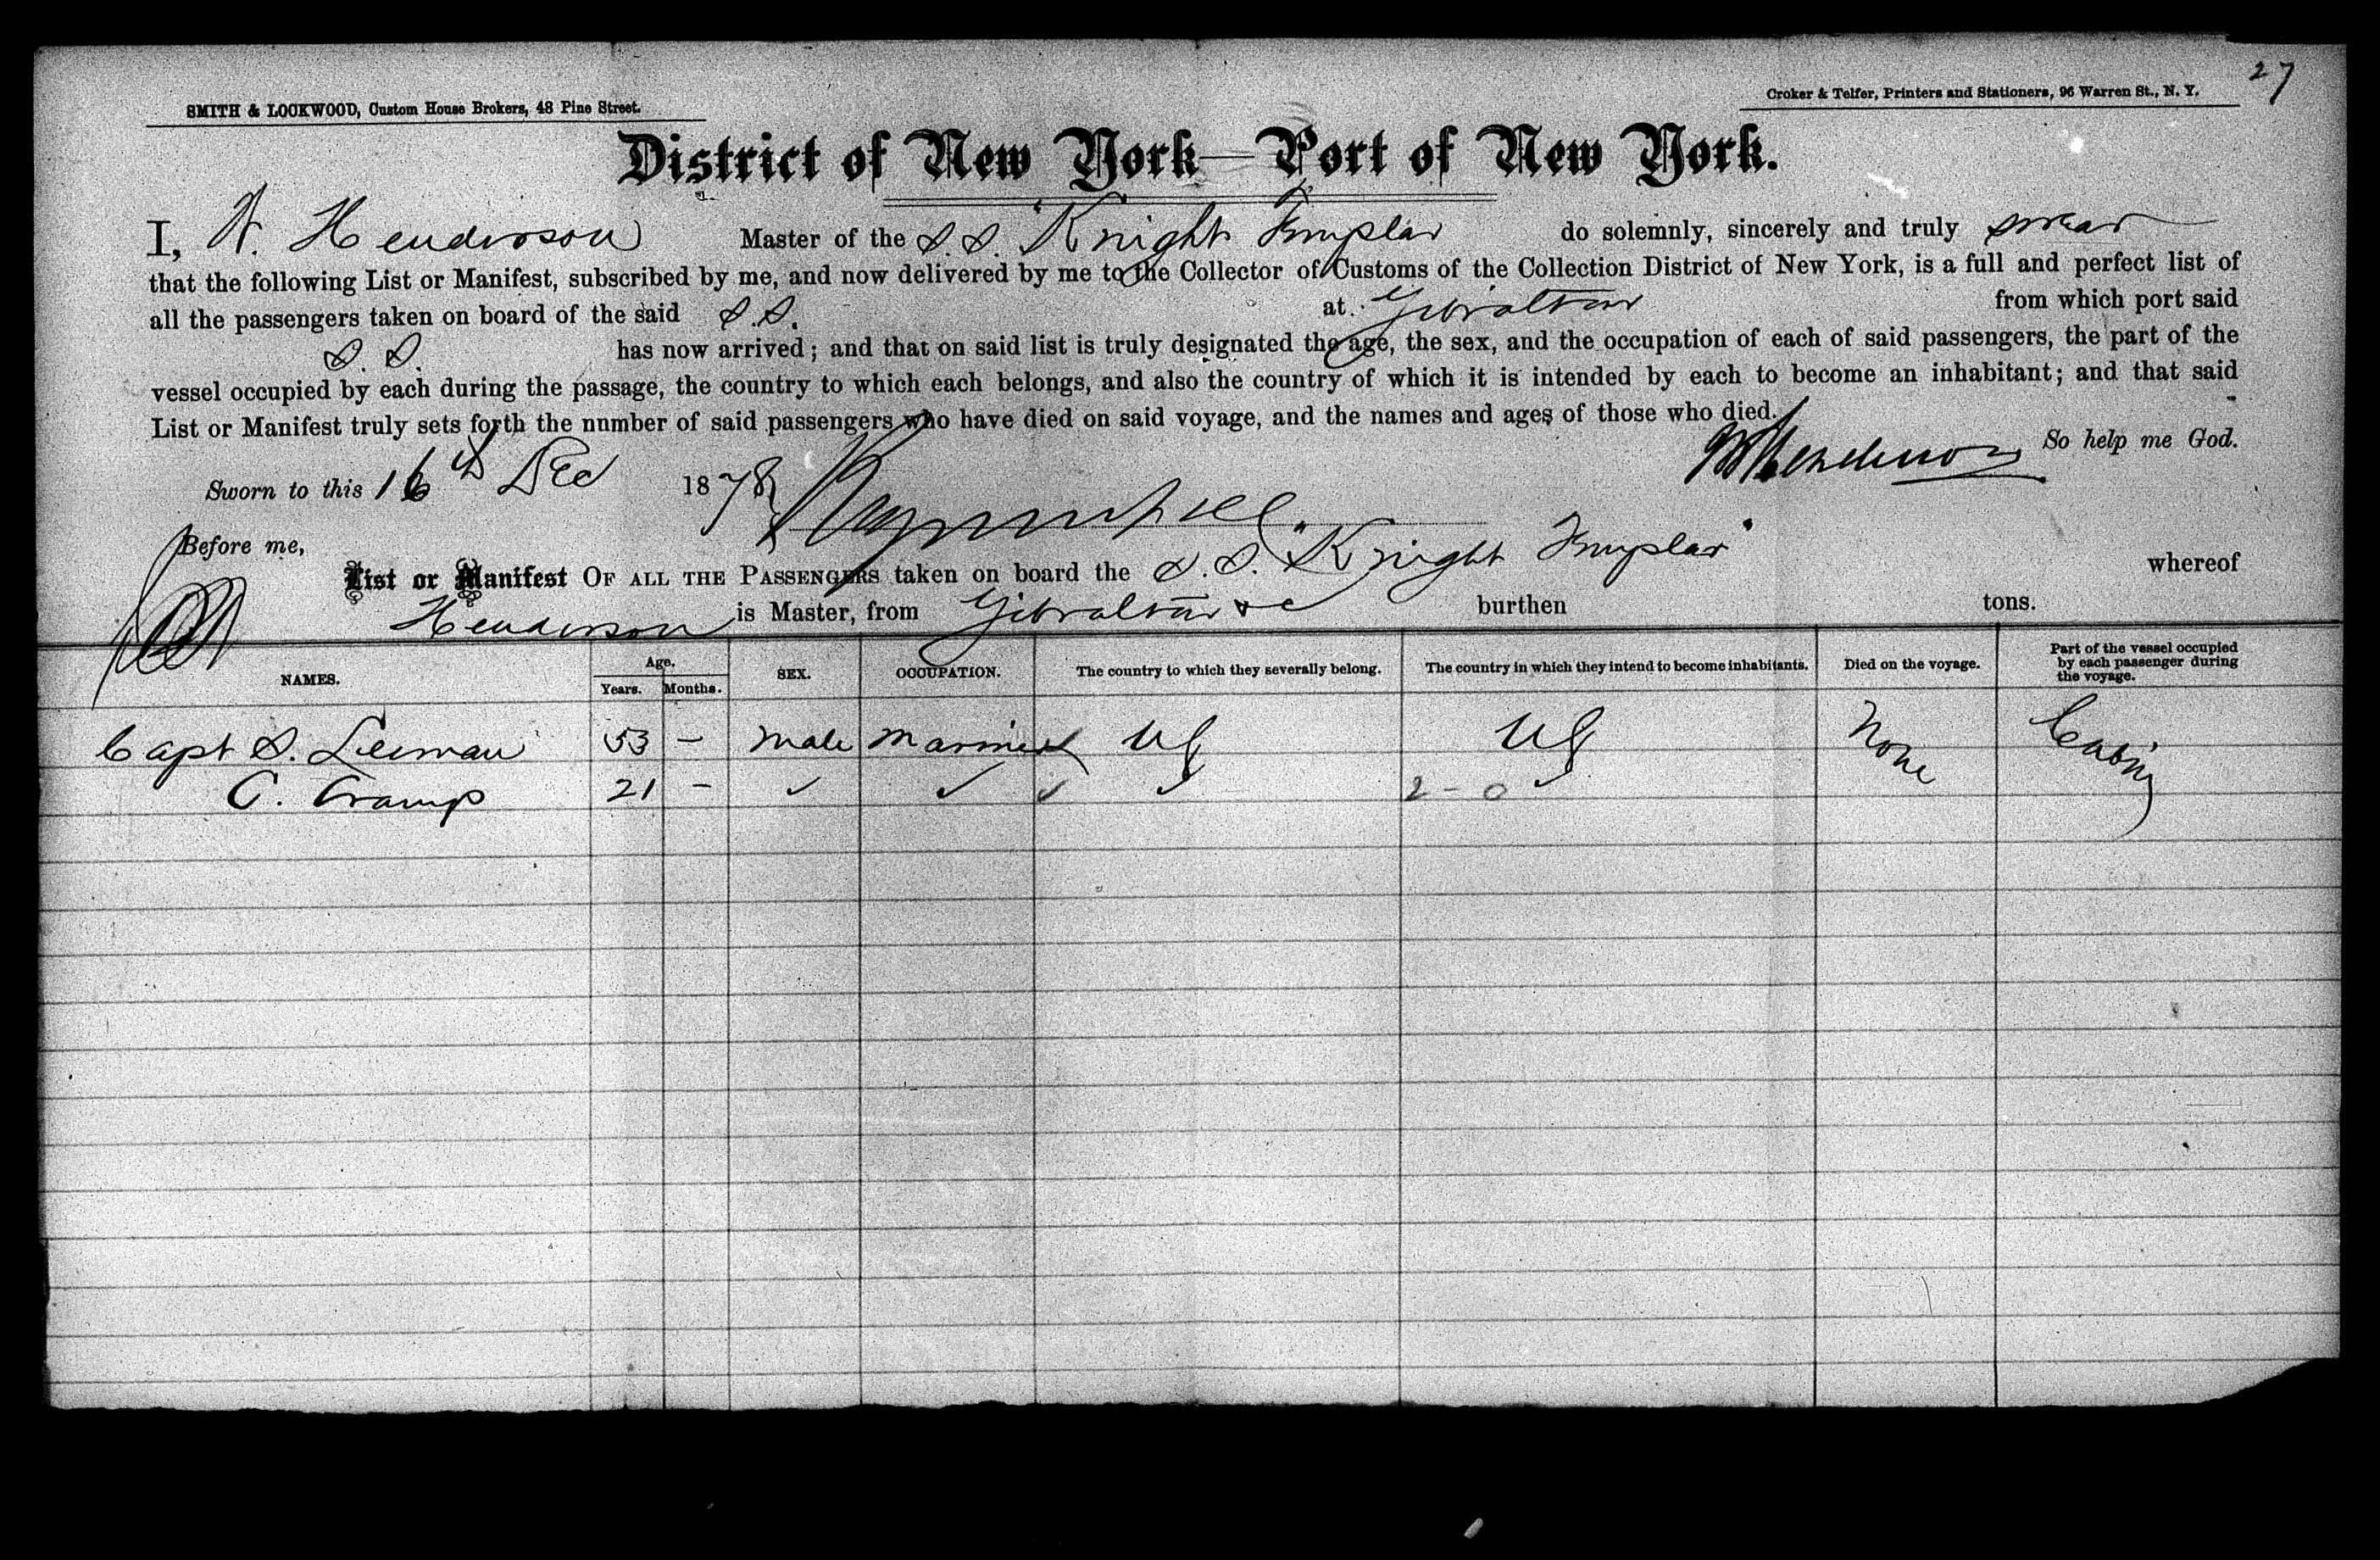 27
SMITH & LOCKWOOD, Custom House Brokers, 48 Pine Street.
Croker & Telfer, Printers and Stationers, 96 Warren St., N. Y.
District of New York—Port of New York.
I, W. Henderson Master of the S.S. "Knight Templar do solemnly, sincerely and truly swear
that the following List or Manifest, subscribed by me, and now delivered by me to the Collector of Customs of the Collection District of New York, is a full and perfect list of
all the passengers taken on board of the said S.S. at Gibraltar from which port said
S. S. has now arrived; and that on said list is truly designated the age, the sex, and the occupation of each of said passengers, the part of the
vessel occupied by each during the passage, the country to which each belongs, and also the country of which it is intended by each to become an inhabitant; and that said
List or Manifest truly sets forth the number of said passengers who have died on said voyage, and the names and ages of those who died.
W Henderson So help me God.
Sworn to this 16th Dec 1878
Before me,
List or Manifest OF ALL THE PASSENGERS taken on board the S.S. "Knight Templar" whereof
Henderson is Master, from Gibraltar &c burthen tons.
NAMES. Age. Years. Months. SEX. OCCUPATION. The country to which they severally belong. The country in which they intend to become inhabitants. Died on the voyage. Part of the vessel occupied by each passenger during the voyage.
Capt S. Leeman 53 – Male Mariner US US None Cabin
C. Cramp 21 – ✓ ✓ ✓ ✓ 2 - 0 ✓